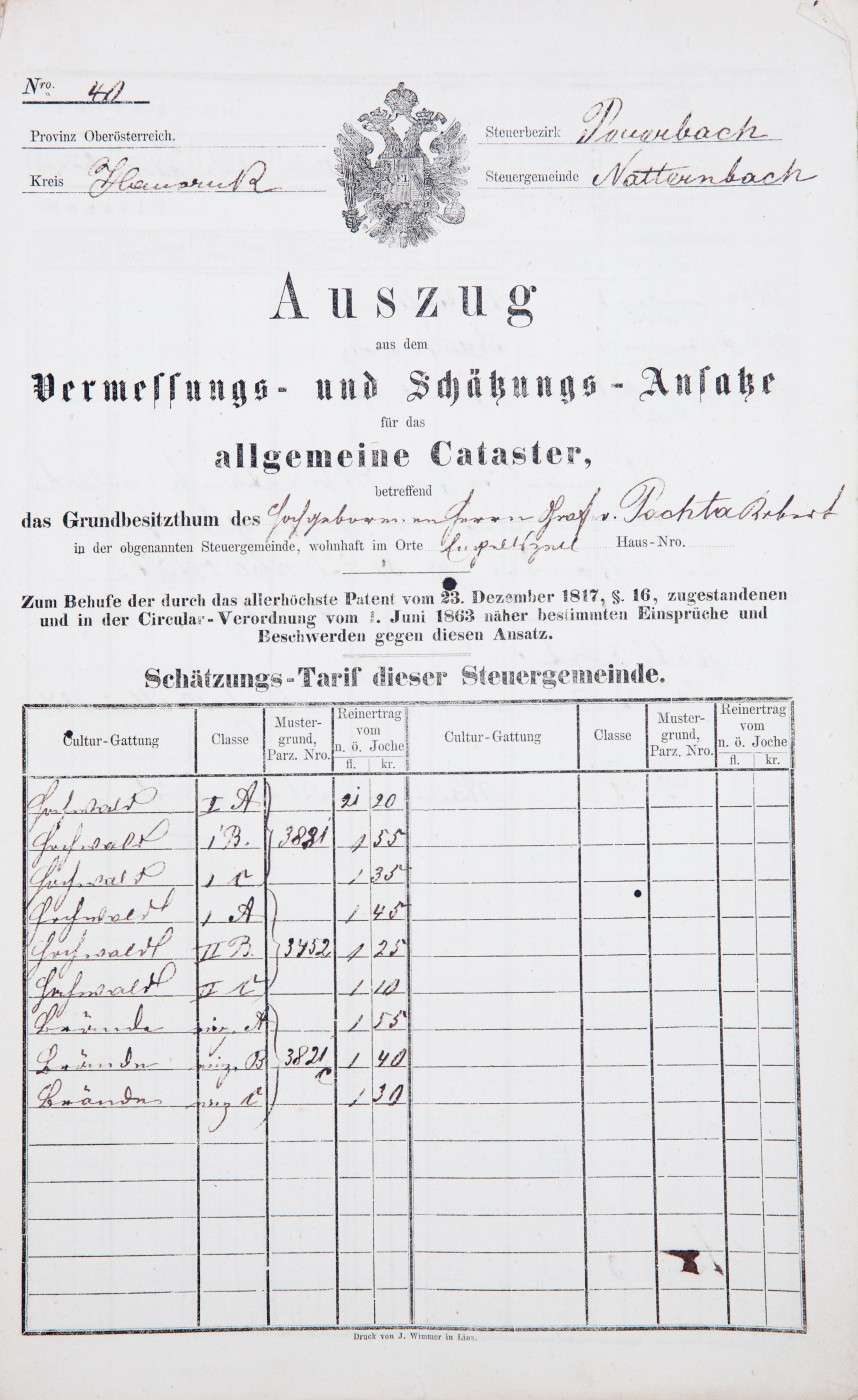 Nro. 40
Provinz Oberösterreich.
Steuerbezirk Peuerbach
Kreis Hausruck
Steuergemeinde Natternbach
Auszug
aus dem
Vermessungs- und Schätzungs-Ansatze
für das
allgemeine Cataster,
betreffend
das Grundbesitzthum des Hochgebornen Herrn Graf v. Pachta Robert
in der obgenannten Steuergemeinde, wohnhaft im Orte Haus-Nro.
Zum Behufe der durch das allerhöchste Patent vom 23. Dezember 1817, §. 16, zugestandenen
und in der Circular-Verordnung vom 1. Juni 1863 näher bestimmten Einsprüche und
Beschwerden gegen diesen Ansatz.
Schätzungs-Tarif dieser Steuergemeinde.
Cultur-Gattung Classe Muster-grund, Parz. Nro. Reinertrag vom n. ö. Joche fl. kr. Cultur-Gattung Classe Muster-grund, Parz. Nro. Reinertrag vom n. ö. Joche fl. kr.
Hochwald I A 2 20
Hochwald I B. 3821 1 55
Hochwald I C 1 35
Hochwald A 1 45
Hochwald II B. 3752 1 25
Hochwald II C 1 10
Brände A 1 55
Brände B 3821 1 40
Brände C 1 30
Druck von J. Wimmer in Linz.